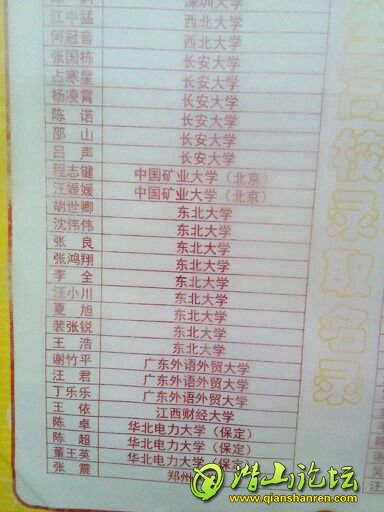 深圳大学
江中猛 西北大学
何冠音 西北大学
张国栋 长安大学
占寒星 长安大学
杨凌霄 长安大学
陈 诺 长安大学
邵 山 长安大学
吕 声 长安大学
程志健 中国矿业大学（北京）
汪媛媛 中国矿业大学（北京）
胡世卿 东北大学
沈伟伟 东北大学
张 良 东北大学
张鸿翔 东北大学
李 全 东北大学
汪小川 东北大学
夏 旭 东北大学
裴张锐 东北大学
王 浩 东北大学
谢竹平 广东外语外贸大学
汪 君 广东外语外贸大学
丁乐乐 广东外语外贸大学
王 依 江西财经大学
陈 卓 华北电力大学（保定）
陈 超 华北电力大学（保定）
董王英 华北电力大学（保定）
张 震 郑州
生高校录取名录
潜山论坛
www.qianshanren.com